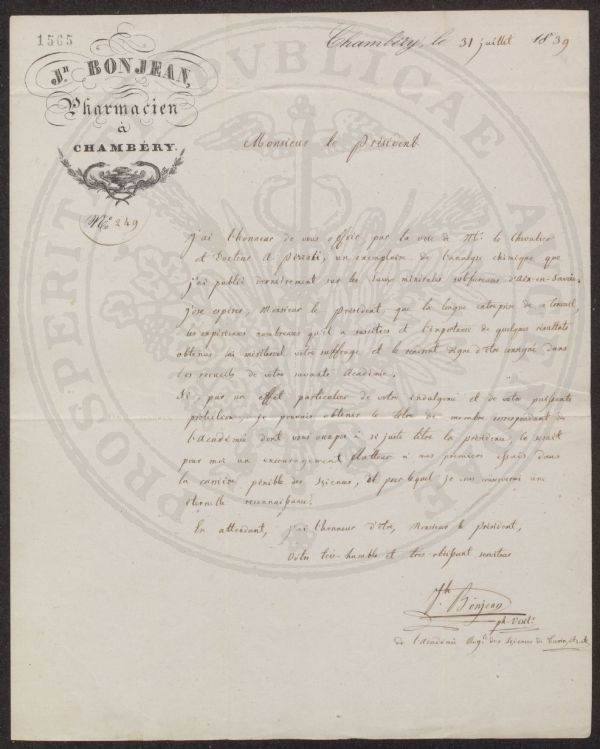 1565
Chambéry, le 31 juillet 1839
Jn BONJEAN,
Pharmacien
à
CHAMBÉRY.
No 249
Monsieur le président
j'ai l'honneur de vous offrir, par la voie de Mr. le Chevalier
et Docteur A. un exemplaire de l'analyse chimique que
j'ai publié dernièrement sur les Eaux minérales sulfureuses d'Aix-en-Savoie.
j'ose espérer, Monsieur le président, que la longue entreprise de ce travail,
les expériences nombreuses qu'il a suscitées et l'importance de quelques résultats
obtenus lui mériteront votre suffrage et le rendront digne d'être consigné dans
les recueils de votre savante Académie.
Si, par un effet particulier de votre indulgence et de votre puissante
protection, je pouvais obtenir le titre de membre correspondant de
l'Académie dont vous occupez à si juste titre la présidence, ce serait
pour moi un encouragement flatteur à mes premiers essais dans
la carrière pénible des sciences, et pour lequel je vous conserverai une
éternelle reconnaissance.
En attendant, j'ai l'honneur d'être, Monsieur le président,
Votre très-humble et très-obéissant serviteur
Jh. Bonjean
de l'Académie des sciences de Turin, etc. etc.
PROSPERITATI PUBLICAE